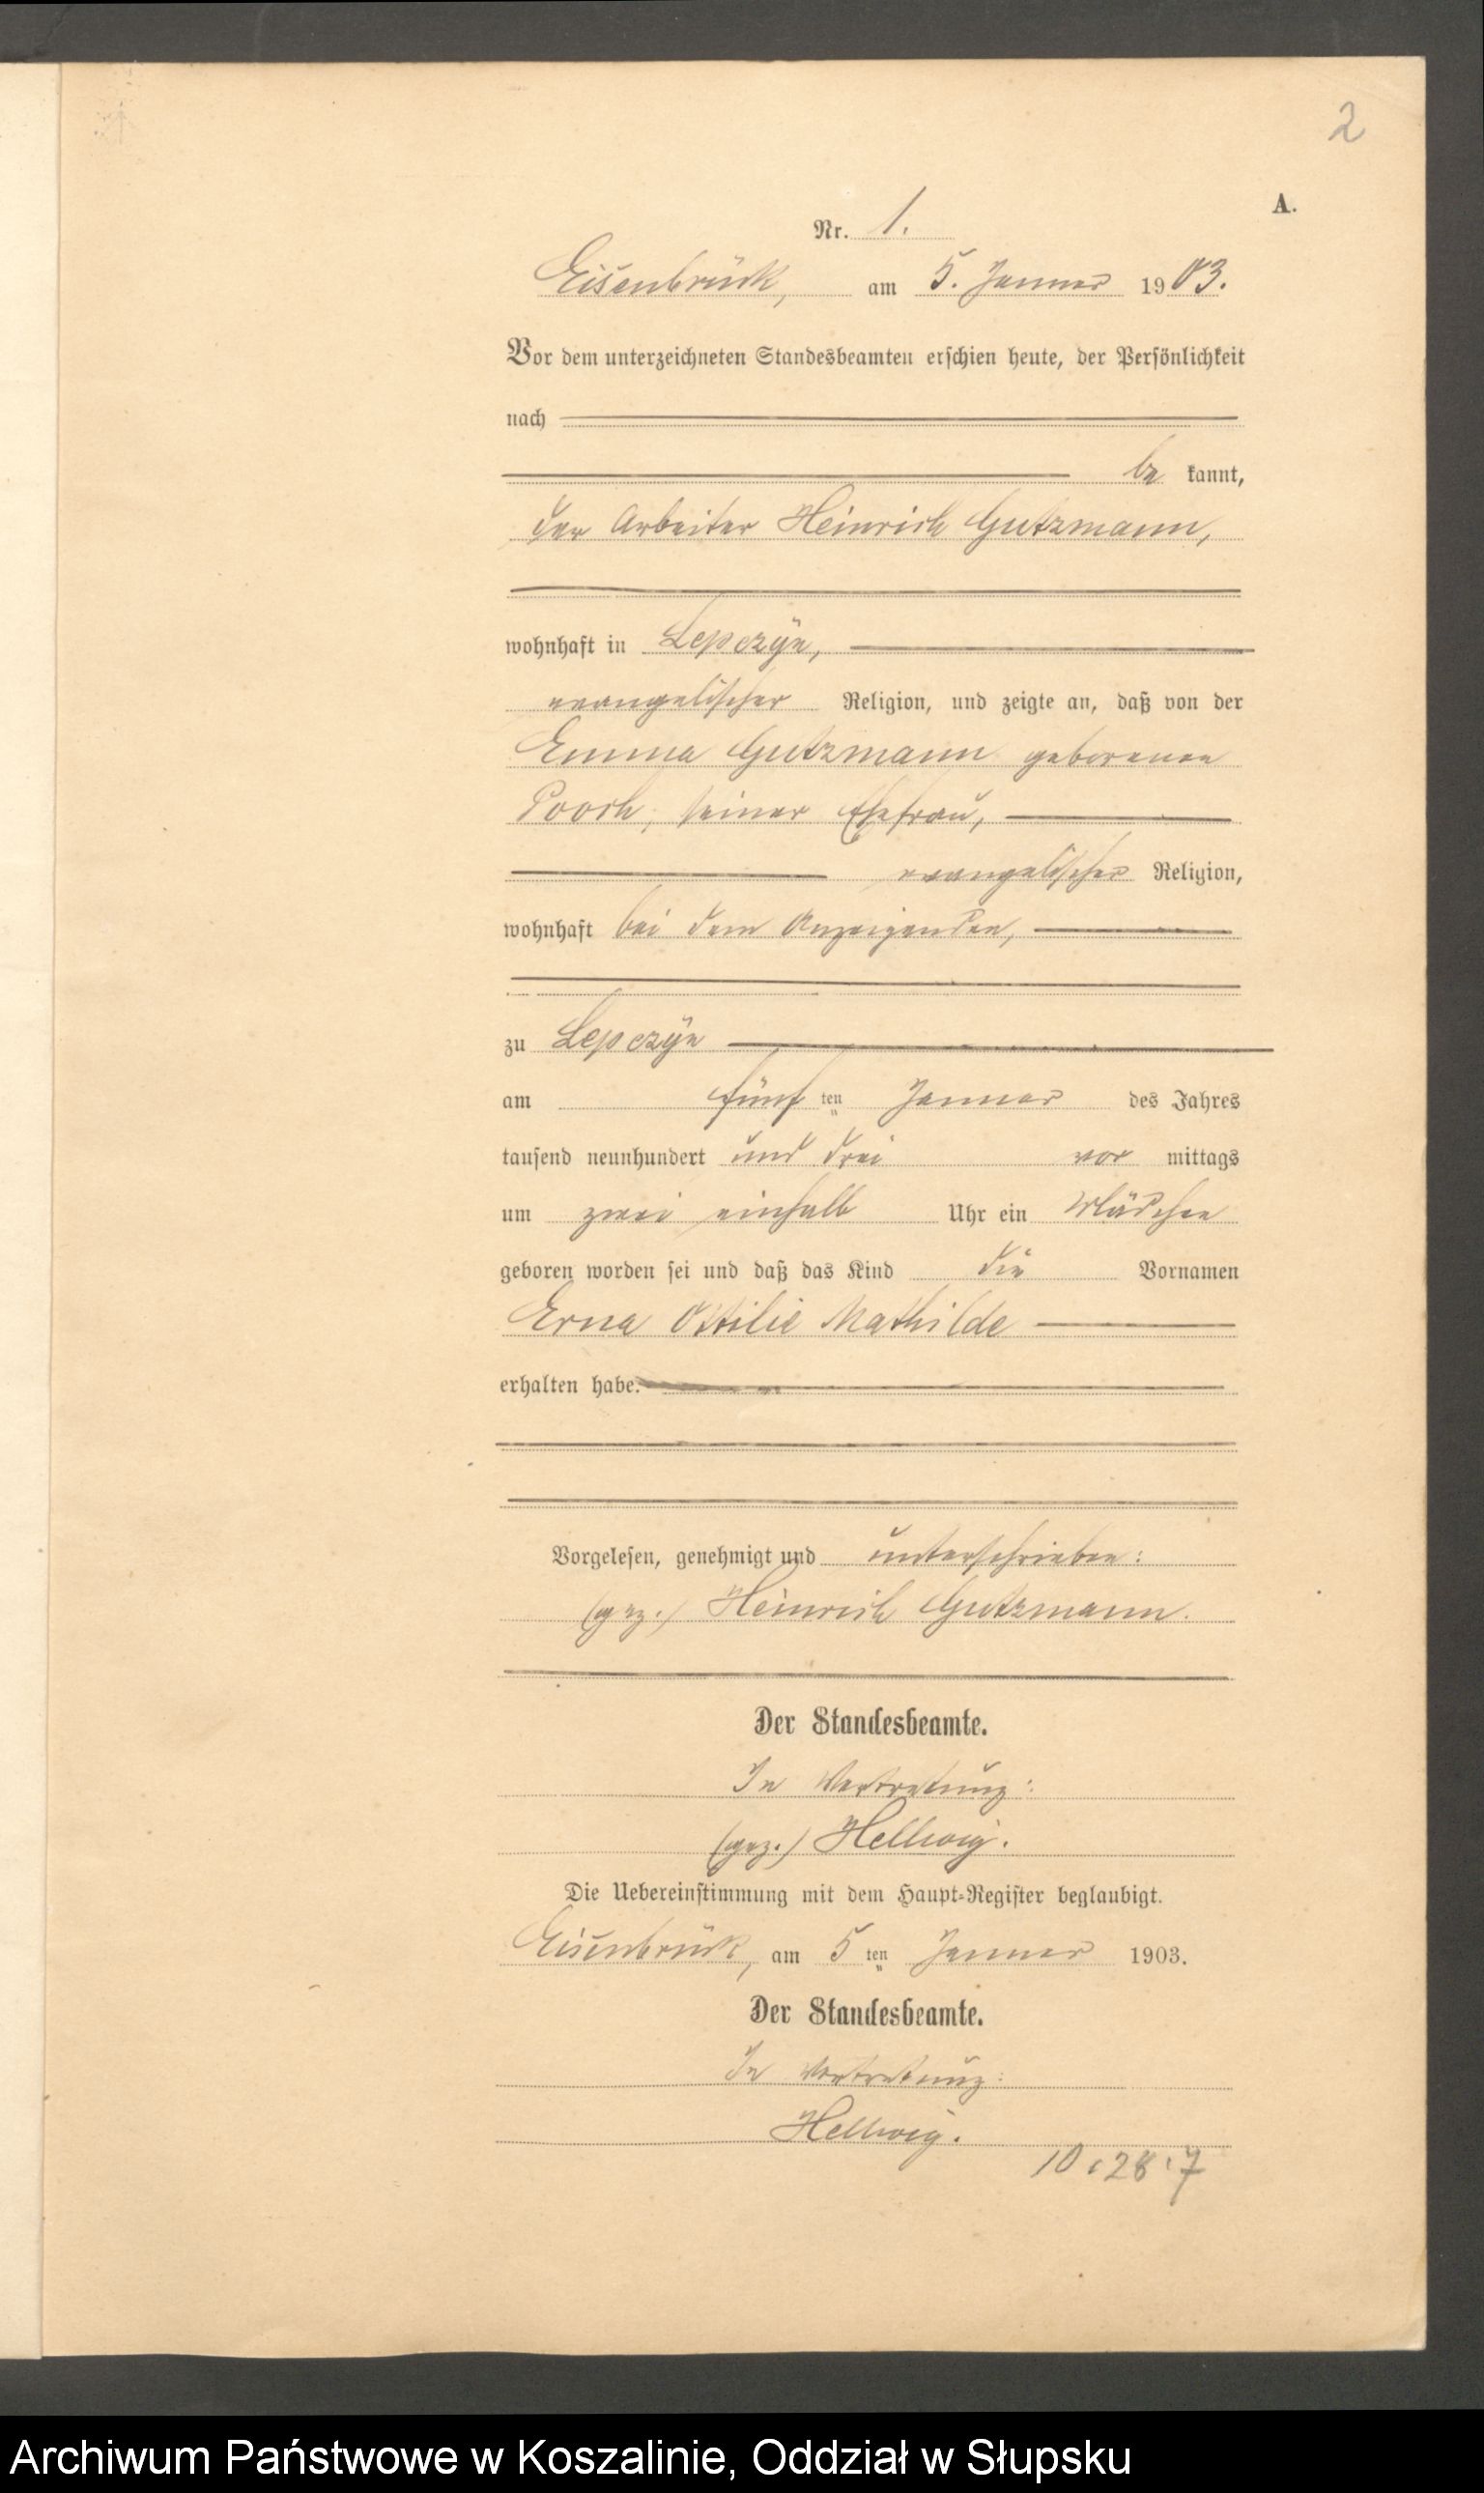 2
A.
Nr. 1.
Eisenbrück, am 5. Januar 1903.
Vor dem unterzeichneten Standesbeamten erschien heute, der Persönlichkeit
nach
be kannt,
der Arbeiter Heinrich Gutzmann,
wohnhaft in Lepczyn,
evangelischer Religion, und zeigte an, daß von der
Emma Gutzmann geborenen
Pooch, seiner Ehefrau,
evangelischer Religion,
wohnhaft bei dem Anzeigenden,
zu Lepczyn
am fünf ten Januar des Jahres
tausend neunhundert und drei vor mittags
um zwei einhalb Uhr ein Mädchen
geboren worden sei und daß das Kind die Vornamen
Erna Ottilie Mathilde
erhalten habe.
Vorgelesen, genehmigt und unterschrieben:
(gez.) Heinrich Gutzmann.
Der Standesbeamte.
In Vertretung:
(gez.) Hellwig.
Die Uebereinstimmung mit dem Haupt-Register beglaubigt.
Eisenbrück, am 5 ten Januar 1903.
Der Standesbeamte.
In Vertretung:
Hellwig.
10:28:7
Archiwum Państwowe w Koszalinie, Oddział w Słupsku